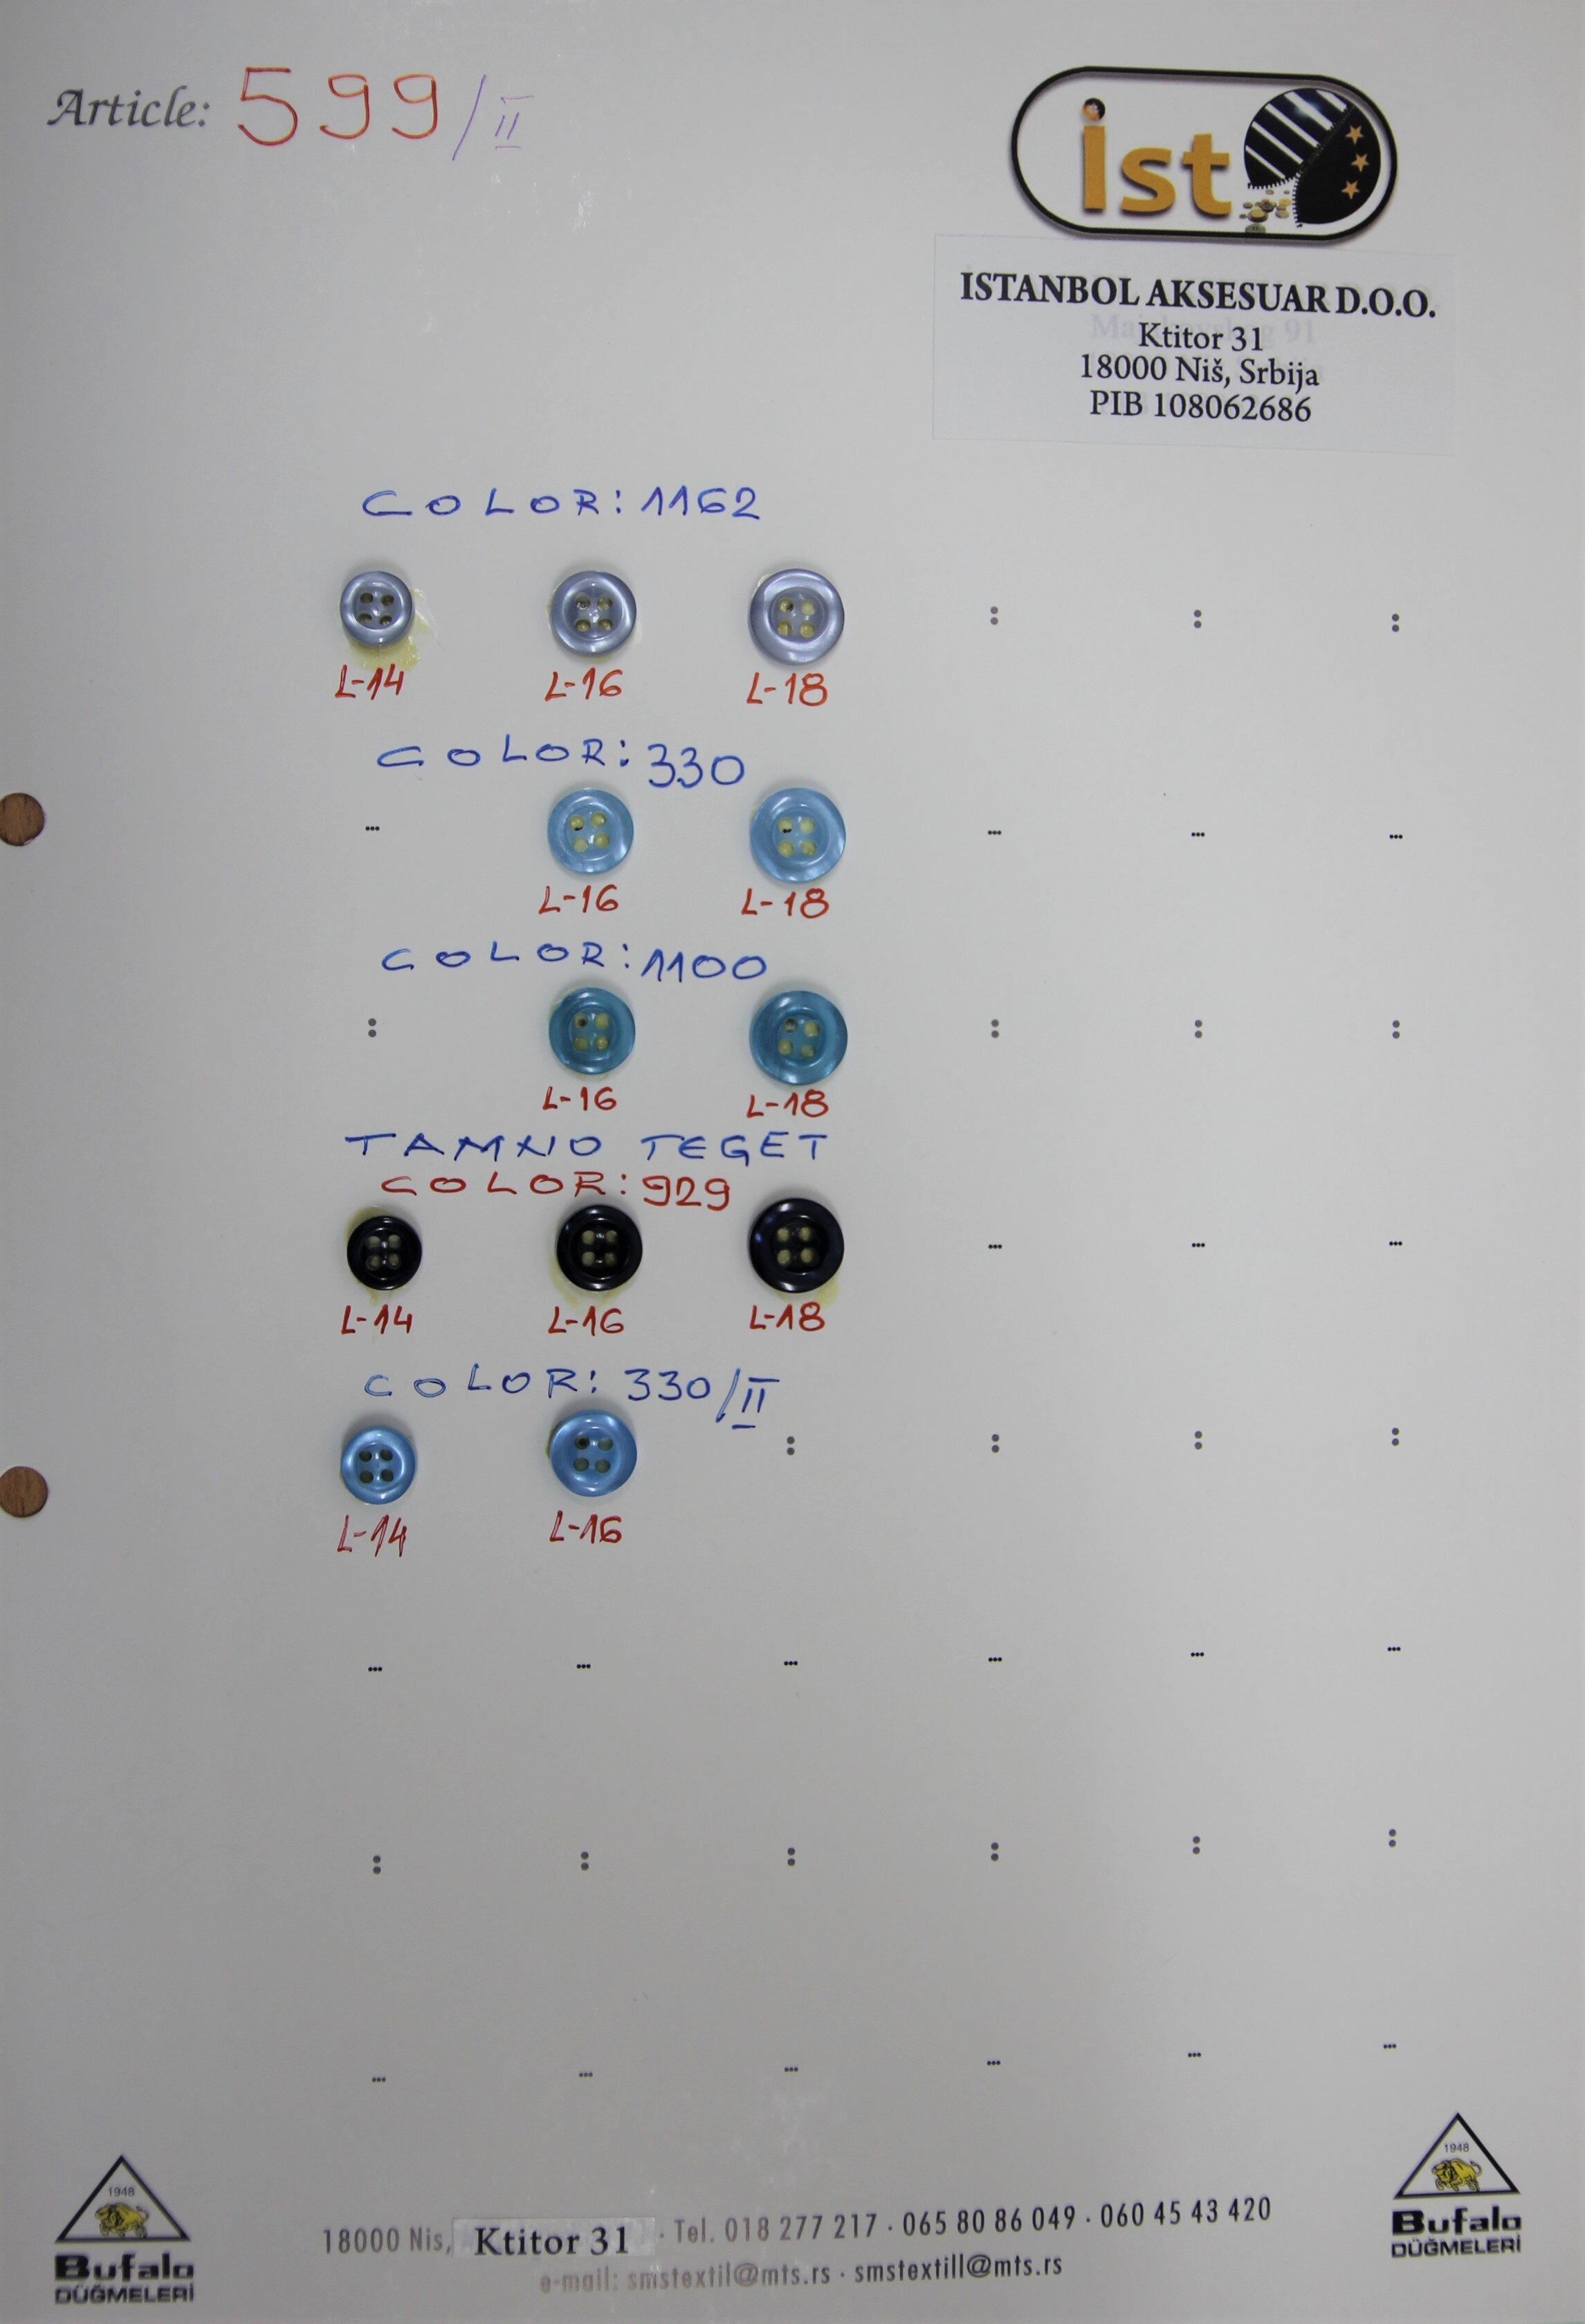 Article: 599/II
ist
ISTANBOL AKSESUAR D.O.O.
Ktitor 31
18000 Niš, Srbija
PIB 108062686
COLOR: 1162
L-14 L-16 L-18
COLOR: 330
L-16 L-18
COLOR: 1100
L-16 L-18
TAMNO TEGET
COLOR: 929
L-14 L-16 L-18
COLOR: 330/II
L-14 L-16
1948
Bufalo
DÜĞMELERİ
18000 Nis, Ktitor 31 · Tel. 018 277 217 · 065 80 86 049 · 060 45 43 420
e-mail: smstextil@mts.rs · smstextill@mts.rs
1948
Bufalo
DÜĞMELERİ